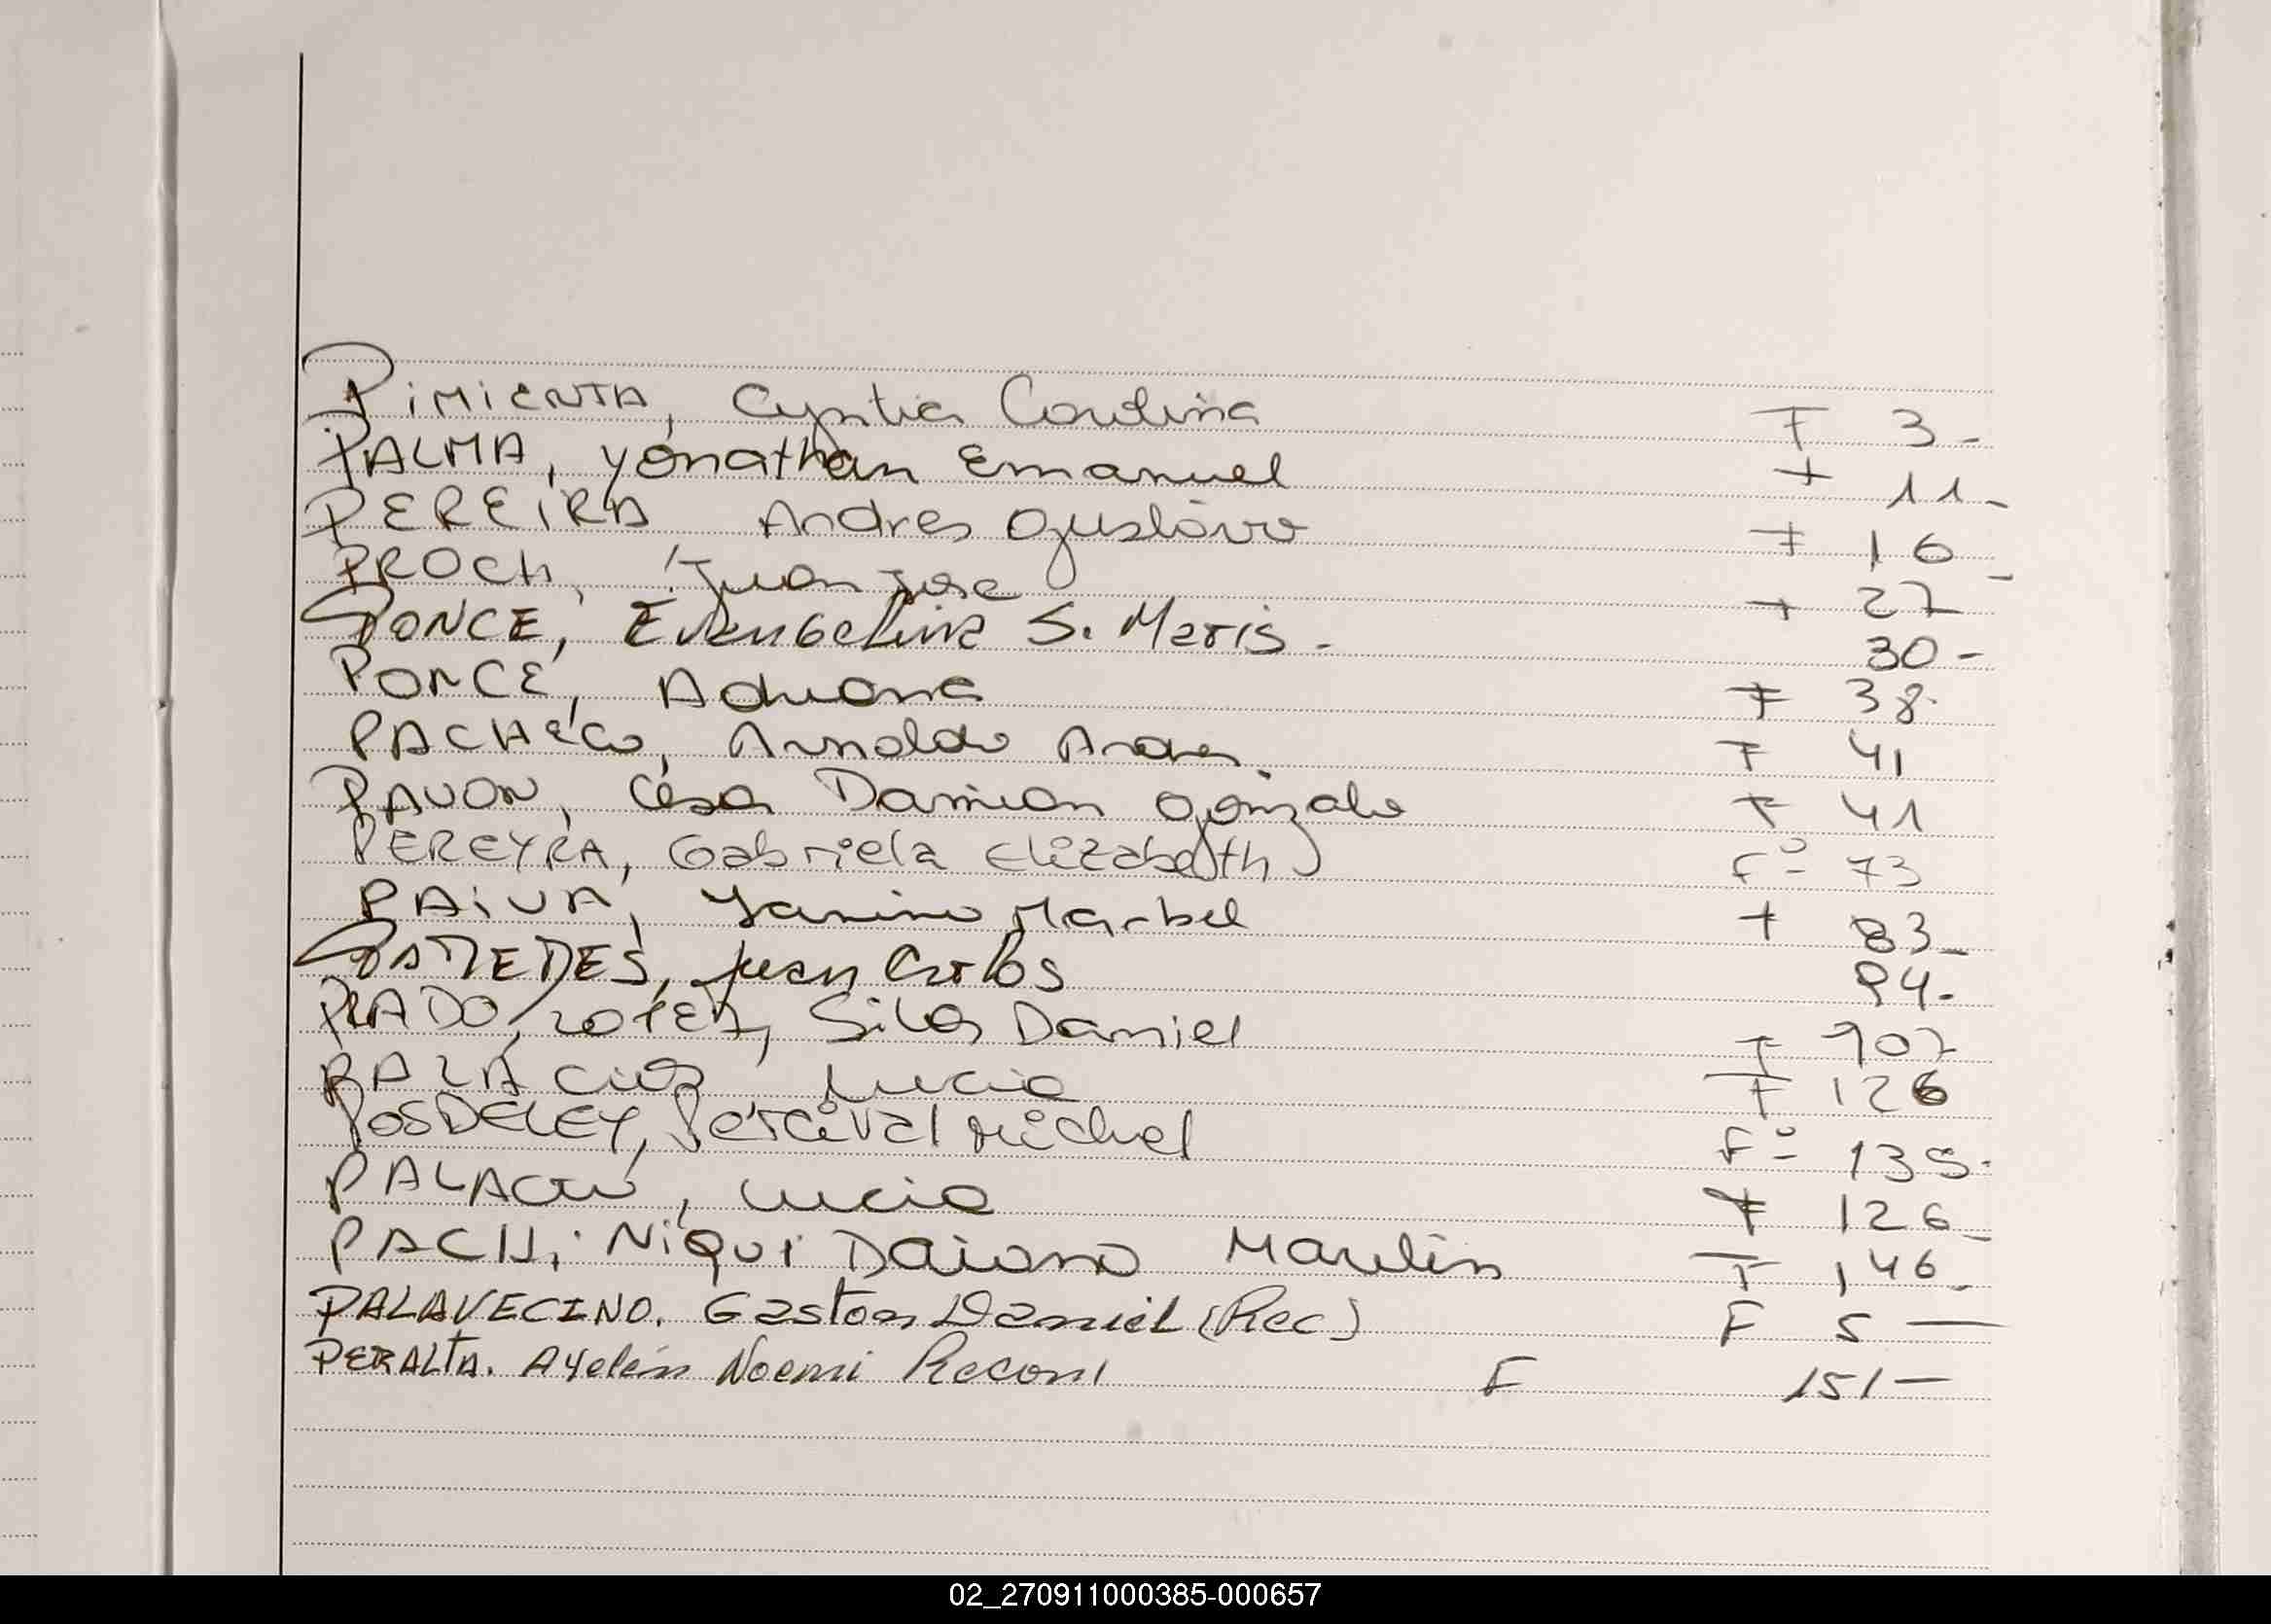 PIMIENTA, Cyntia Carolina F 3-
PALMA, Yonathan Emanuel F 11-
PEREIRA Andres Gustavo F 16-
PROCH, Juan Jose F 27
PONCE, Evangelina S. Maris - 30-
PONCE, Adriana F 38-
PACHECO, Arnoldo Andres. F 41
PAVON, César Damian Gonzalo F 41
PEREYRA, Gabriela Elizabeth Fº 73
PAIVA, Yanina Marbel F 83-
Juan Carlos 94-
PRADO, LOPEZ, Silas Daniel F 107
PALACIOS, Lucia F 126
POSDELEY, Percival Michel Fº 135-
PALACIO, Lucia F 126-
PACH, Niqui Daiana Marilin F 146-
PALAVECINO. Gaston Daniel (Rec) F 5 —
PERALTA. Ayelén Noemi Recon F 151 —
02_270911000385-000657